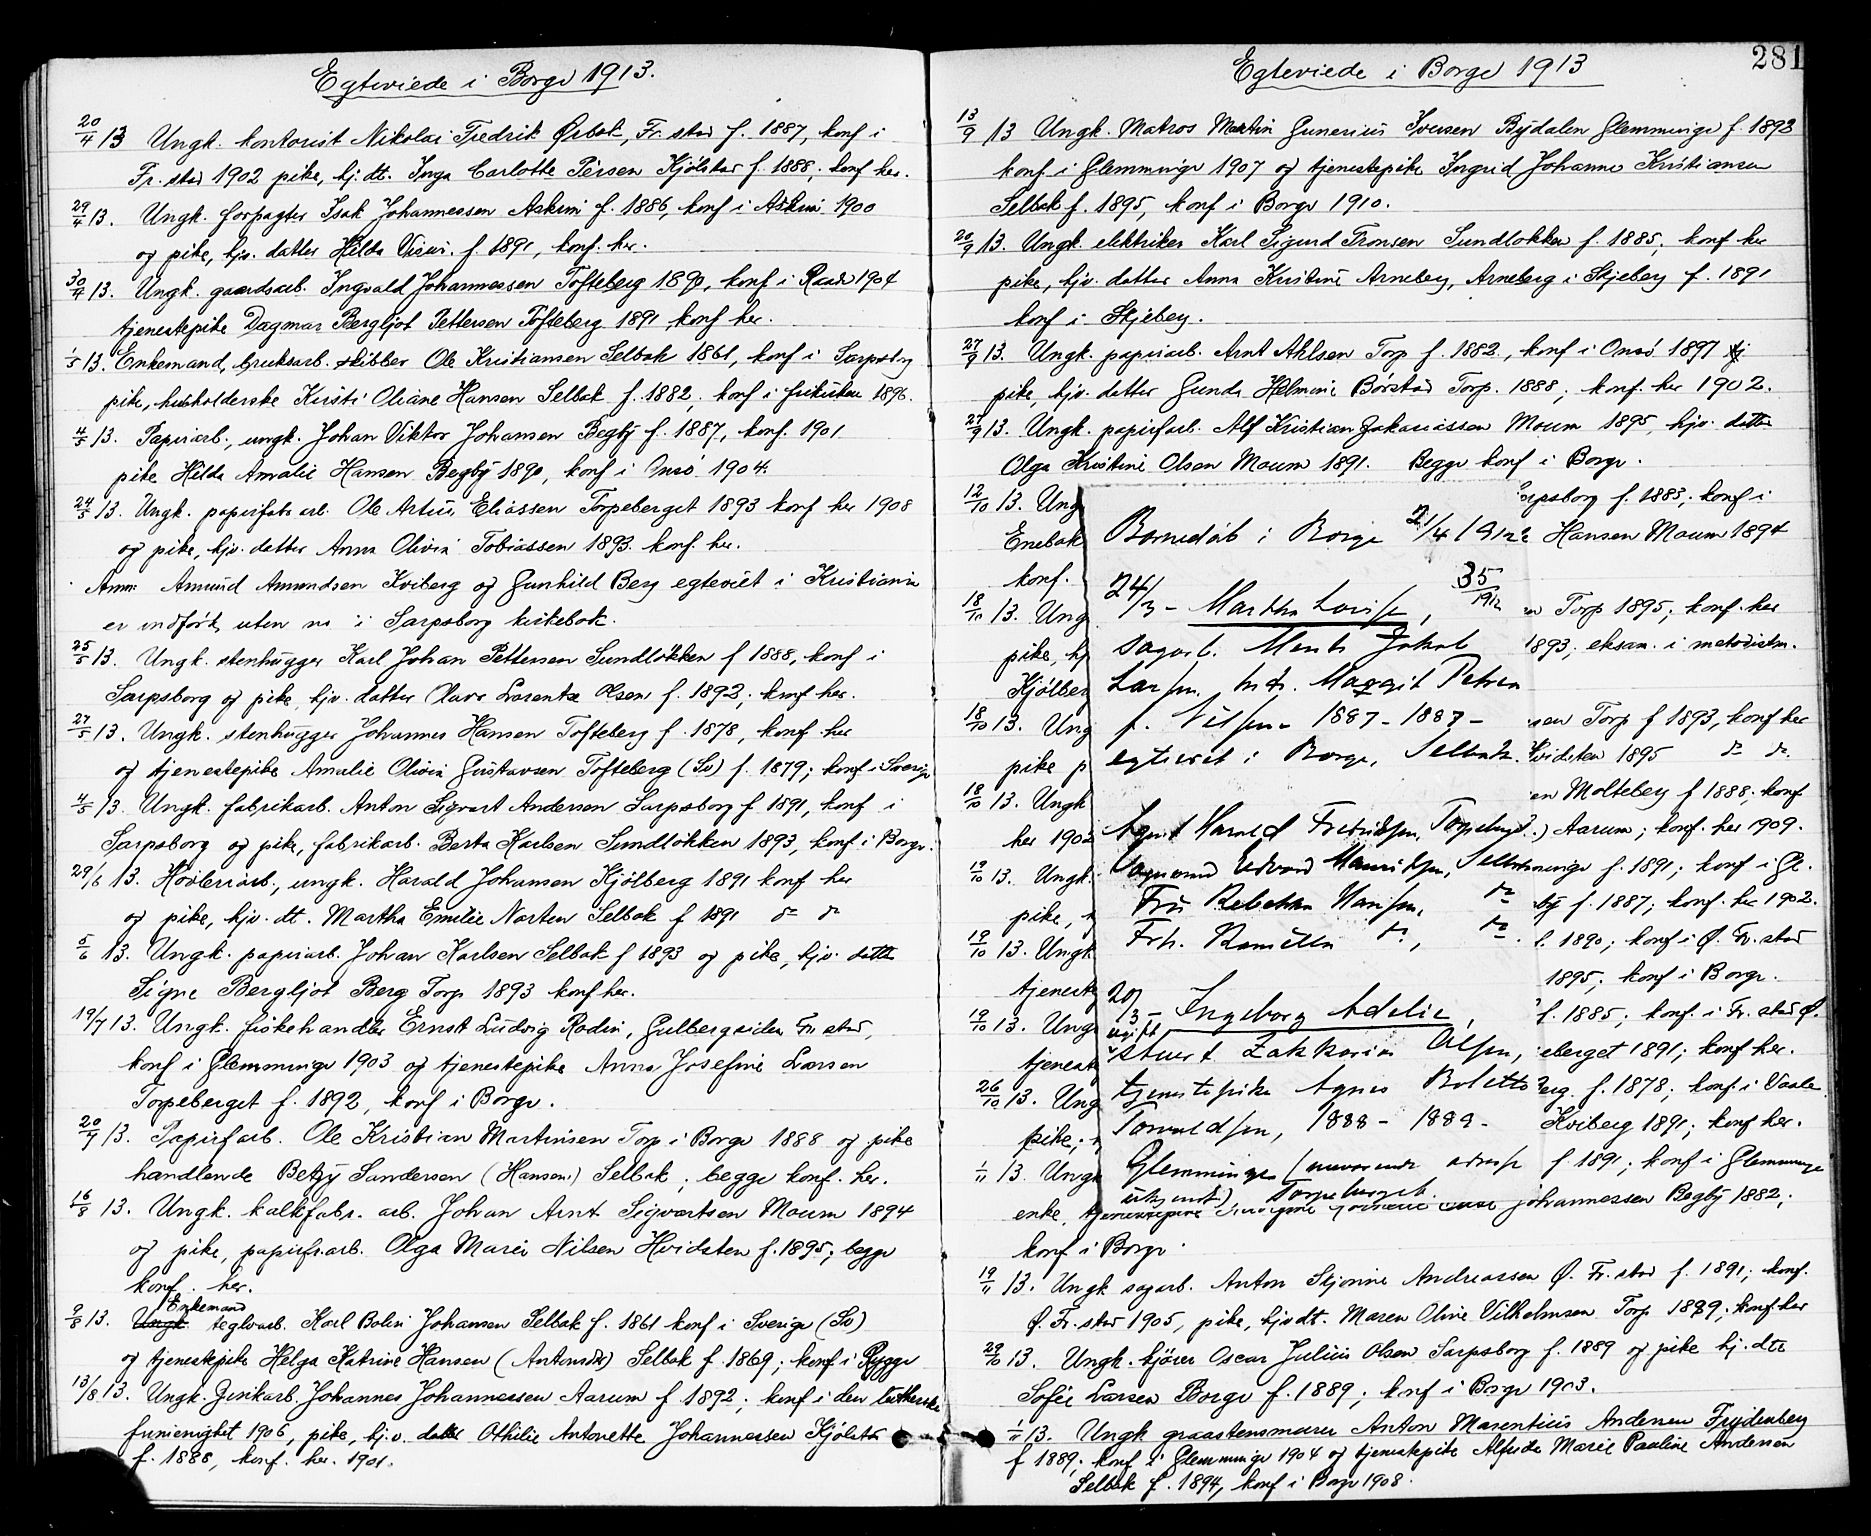 Egteviede i Borge 1913.
20/4 13 Ungk. kontorist Nikolai Fredrik Ørbek, Fr.stad f. 1887, konf i
Fr.stad 1902 pike, hj. dt. Inga Carlotte Persen Kjölstad f. 1888, konf her.
29/4 13. Ungk. forpagter Isak Johannessen Askim f. 1886, konf i Askim 1900
og pike, hjv. datter Hilda f. 1891, konf. her.
30/4 13. Ungk. gaardsarb. Ingvald Johannessen Tofteberg 1890, konf i Raade 1904
tjenestepike Dagmar Bergljot Pettersen Tofteberg 1891 konf her.
1/5 13. Enkemand, bruksarb. skibber Ole Kristiansen Selbak 1861, konf i Sarpsborg
pike, husholderske Kirsti Oliane Hansen Selbak f. 1882, konf i frikirken 1896.
4/5 13. Papirarb., ungk. Johan Viktor Johansen Begby f. 1887, konf. 1901
pike Hilda Amalie Hansen Begby 1890, konf i Onsö 1904.
24/5 13. Ungk. papirfabr arb. Ole Artur Eliassen Torpeberget 1893 konf her 1908
og pike, hjv. datter Anna Olivia Tobiassen 1893. konf. her.
Anm: Amund Amundsen Kviberg og Gunhild Berg egteviet i Kristiania
er indfört uten nr i Sarpsborg kirkebok.
25/5 13. Ungk. stenhugger Karl Johan Pettersen Sundlökken f 1888, konf i
Sarpsborg og pike, hjv. datter Olava Lorentze Olsen f. 1892; konf her.
27/5 13. Ungk. stenhugger Johannes Hansen Tofteberg f. 1878, konf her
og tjenestepike Amalie Olivia Gustavsen Tofteberg (Sv) f. 1879; konf i Sverige
4/5 13. Ungk. fabrikarb. Anton Sigvart Andersen Sarpsborg f 1891, konf i
Sarpsborg og pike, fabrikarb. Berta Karlsen Sundlökken 1893, konf i Borge.
29/6 13. Hövleriarb., ungk. Harald Johansen Kjölberg 1891 konf her
og pike, hjv. dt. Martha Emilie Norten Selbak f 1891 do do
5/6 13. Ungk. papirarb. Johan Karlsen Selbak f 1893 og pike, hjv. datter
Signe Bergljot Berg Torp 1893 konf her.
19/7 13. Ungk. fiskehandler Ernst Ludvig Rodin, Gulbergsiden Fr.stad,
konf i Glemminge 1903 og tjenestepike Anna Josefine Larsen
Torpeberget f. 1892, konf i Borge.
20/7 13. Papirfarb. Ole Kristian Martinsen Torp i Borge 1888 og pike
handlende Betzy Sandersen (Hansen) Selbak; begge konf. her.
16/8 13. Ungk. kalkfabr. arb. Johan Arnt Sigvartsen Moum 1894
og pike, papirfr.arb. Olga Marie Nilsen Hvidsten f. 1895; begge
konf. her.
Enkemand
9/8 13. Ungk. teglv.arb. Karl Bolin Johansen Selbak f. 1861 konf i Sverige (Sv)
og tjenestepike Helga Katrine Hansen (Antonsdtr) Selbak f. 1869; konf i Rygge
13/8 13. Ungk. Johannes Johannessen Aarum f 1892; konf i den lutherske
frimenighet 1906, pike, hj.v. datter Othilie Antonette Johannessen Kjölstad
f. 1888, konf. her. 1901.
281
Egteviede i Borge 1913
13/9 13 Ungk. Matros Martin Gunerius Iversen Bydalen Glemminge f 1893
konf. i Glemminge 1907 og tjenestepike Ingrid Johanne Kristiansen
Selbak f. 1895, konf i Borge 1910.
20/9 13. Ungk. elektriker Karl Sigurd Fransen Sundlökken f. 1885, konf her
pike, hjv. datter Anna Kristine Arneberg, Arneberg i Skjeberg f. 1891
konf i Skjeberg.
27/9 13. Ungk. papirarb. Arnt Ahlsen Torp f. 1882, konf i Onsö 1897
pike, hjv. datter Gunda Helmine Börstad Torp. 1888; konf. her 1902.
27/9 13. Ungk. papirfarb. Alf Kristian Zakariassen Moum 1895, hjv. datter
Olga Kristine Olsen Moum 1891. Begge konf i Borge.
12/10 13. Ung arpsborg f. 1883; konf i
Enebak Hansen Moum 1894
konf.
18/10 13. Ung Torp 1895; konf. her
pike, hj 1893; eksam. i metodistm.
Kjölber
18/10 13. Ung sen Torp f 1893, konf her
pike p Hvidsten 1895 do do.
18/10 13. Ungk en Molteberg f 1888; konf
her 1902 Aarum; konf. her 1909.
19/10 13. Ungk. minge f. 1891; konf i Gl.
pike, by f. 1887; konf. her 1902.
19/10 13. Ungk f. 1890; konf i Ø. Fr.stad
tjeneste 1895; konf i Borge.
19/10 13. Ungk f. 1885; konf. i Fr.stad Ø.
tjenest eberget 1891; konf her.
26/10 13. Ung berg. f. 1878; konf. i Vaale
pike; Kviberg 1891; konf her.
1/11 13. Ungk f 1891; konf i Glemminge
enke, tjenestepike Johannessen Begby 1882;
konf i Borge.
Barnedåb i Borge 21/4 1912
24/3 - Martha Lovise, 35/1912
sagarb. Marits Jakob
Larsen, hstr. Margit Petrea
f. Nilsen 1887 - 1887 -
egteviet i Borge, Selbak.
Agnes Harald Fredriksen, Torpeberget.
Edvard Henriksen, Selbak
Fru Rebekka Hansen, do
Frk. Kamilla do, do.
20/3 - Ingeborg Adelie,
ugift
stuert Zakkarias Olsen,
tjenestepike Agnes Bolette
Torvaldsen, 1888 - 1889 -
Glemminge (nuværende adresse
ukjendt), Torpeberget.
19/11 13. Ungk sagarb. Anton Skjönne Andreassen Ø. Fr.stad f. 1891; konf.
Ø. Fr.stad 1905, pike, hjvdt. Maren Oline Vilhelmsen Torp 1889; konf her
29/10 13. Ungk. kjörer Oscar Julius Olsen Sarpsborg f. 1889 og pike hj. dtr
Sofie Larsen Borge f. 1889; konf i Borge 1903.
1/11 13. Ungk graastensmurer Anton Marentius Andersen Frydenberg
f 1889; konf i Glemminge 1904 og tjenestepike Alfrida Marie Pauline Andersen
Selbak f. 1894, konf i Borge 1908.